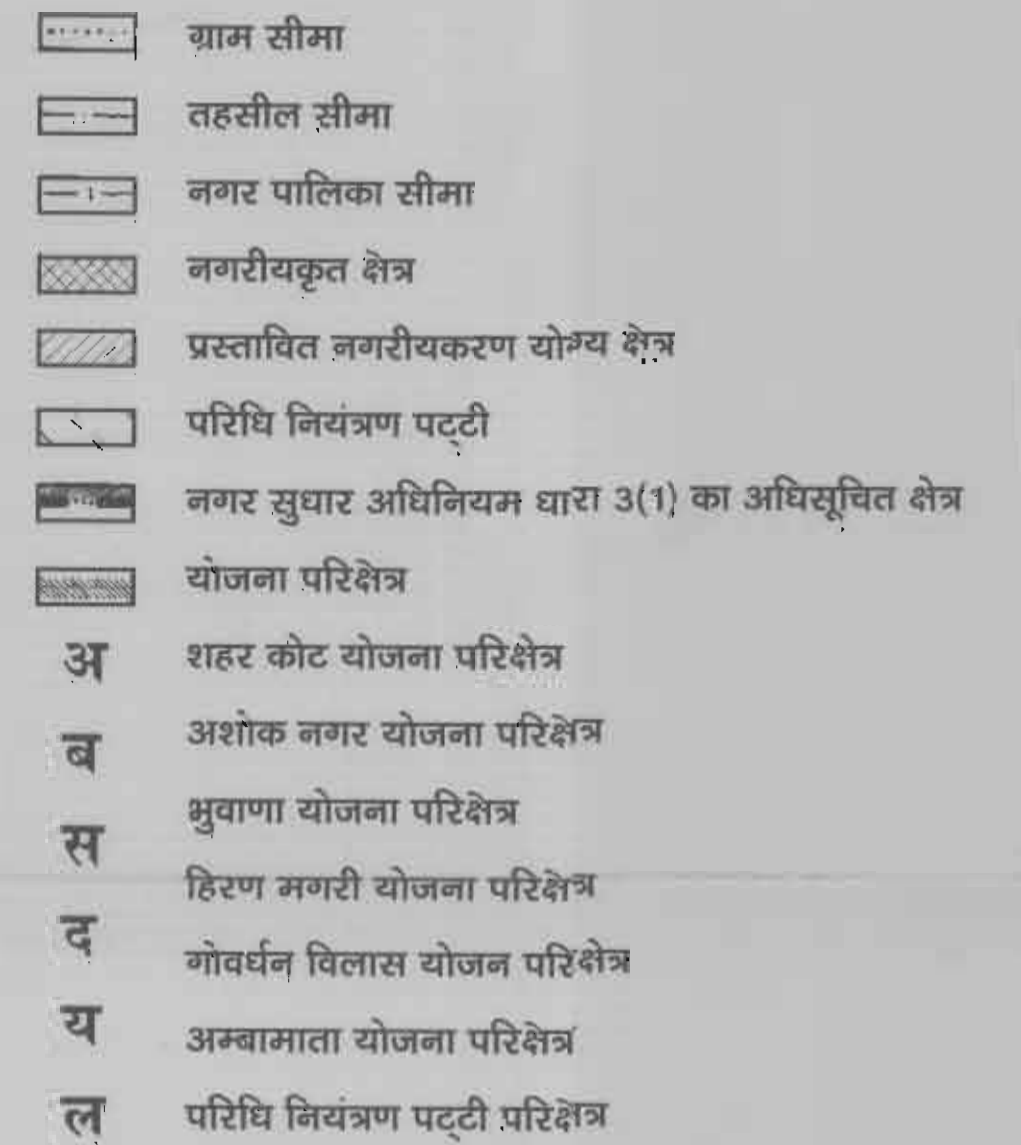 ग्राम सीमा
तहसील सीमा
नगर पालिका सीमा
नगरीयकृत क्षेत्र
प्रस्तावित नगरीयकरण योग्य क्षेत्र
परिधि नियंत्रण पट्टी
नगर सुधार अधिनियम धारा 3(1) का अधिसूचित क्षेत्र
योजना परिक्षेत्र
अ शहर कोट योजना परिक्षेत्र
ब अशोक नगर योजना परिक्षेत्र
स भुवाणा योजना परिक्षेत्र
हिरण मगरी योजना परिक्षेत्र
द गोवर्धन विलास योजन परिक्षेत्र
य अम्बामाता योजना परिक्षेत्र
ल परिधि नियंत्रण पट्टी परिक्षेत्र